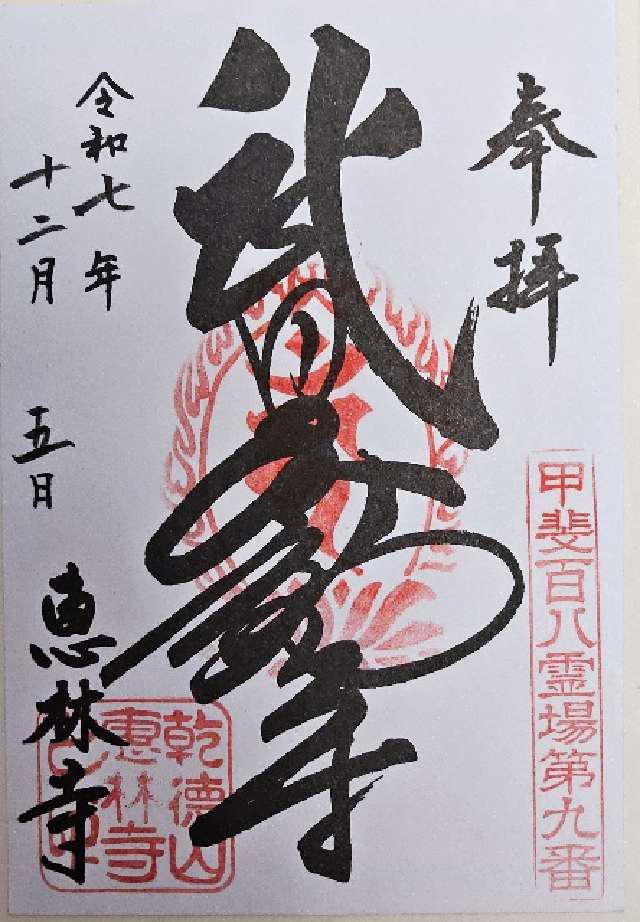 奉拝
甲斐百八霊場第九番
武田不動尊
令和七年
十二月 五日
恵林寺
乾徳山
惠林寺